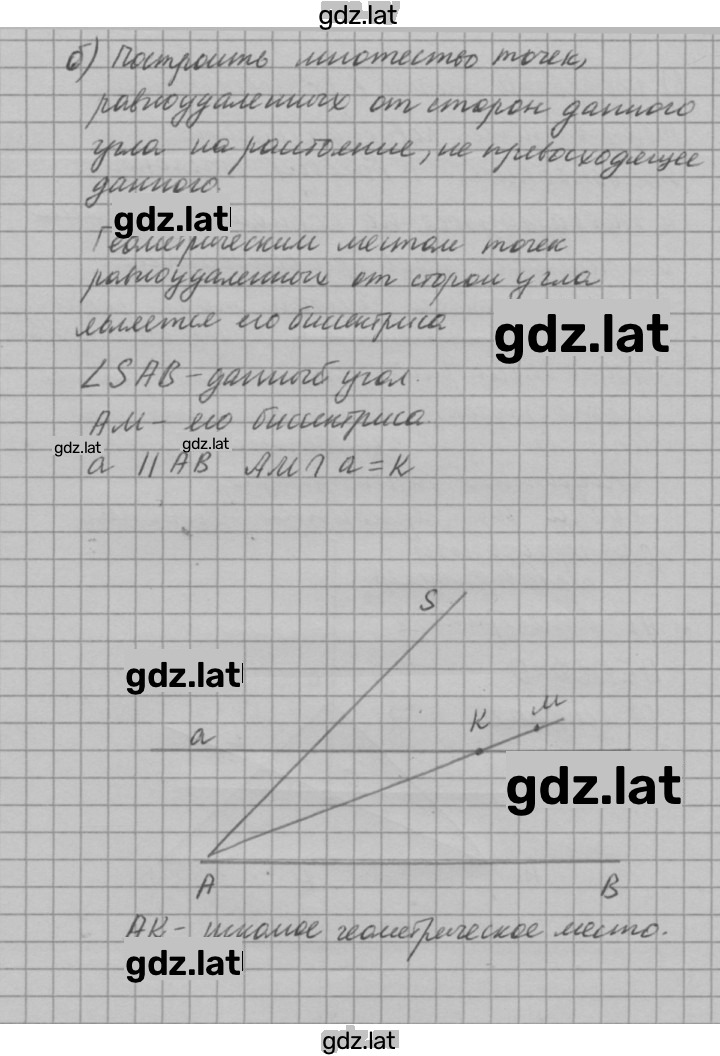 gdz.lat
б) Построить множество точек,
равноудаленных от сторон данного
угла на расстояние, не превосходящее
данного.
gdz.lat
Геометрическим местом точек
равноудаленных от сторон угла
является его биссектриса
gdz.lat
∠SAB - данный угол.
AM - его биссектриса.
gdz.lat gdz.lat
a || AB AM ∩ a = K
S
gdz.lat
M
K
a
gdz.lat
A B
AK - искомое геометрическое место.
gdz.lat
gdz.lat